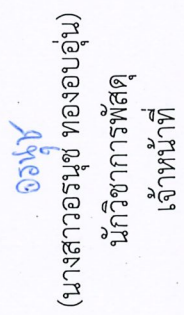 อรนุช
(นางสาวอรนุช ทองอบอุ่น)
นักวิชาการพัสดุ
เจ้าหน้าที่